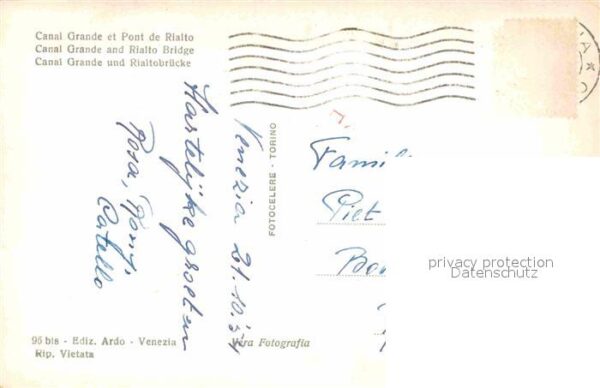 Canal Grande et Pont de Rialto
Canal Grande and Rialto Bridge
Canal Grande und Rialtobrücke
Venezia 21.10.54
Hartelijke groeten
Rosa,
Catello
FOTOCELERE - TORINO
Famil
Piet
privacy protection
Datenschutz
96 bis - Ediz. Ardo - Venezia
Rip. Vietata
Vera Fotografia